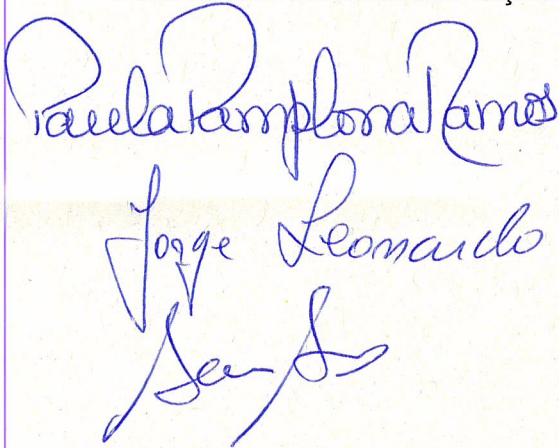 Paula Pamplona Ramos
Jorge Leonardo